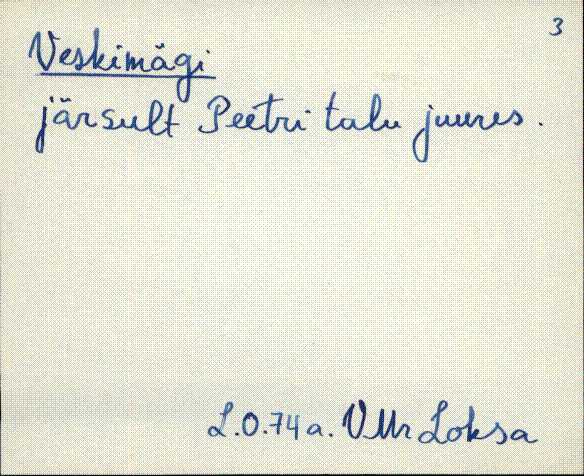 3
Veskimägi
järsult Peetri talu juures.
L.O. 74 a. VMr Loksa